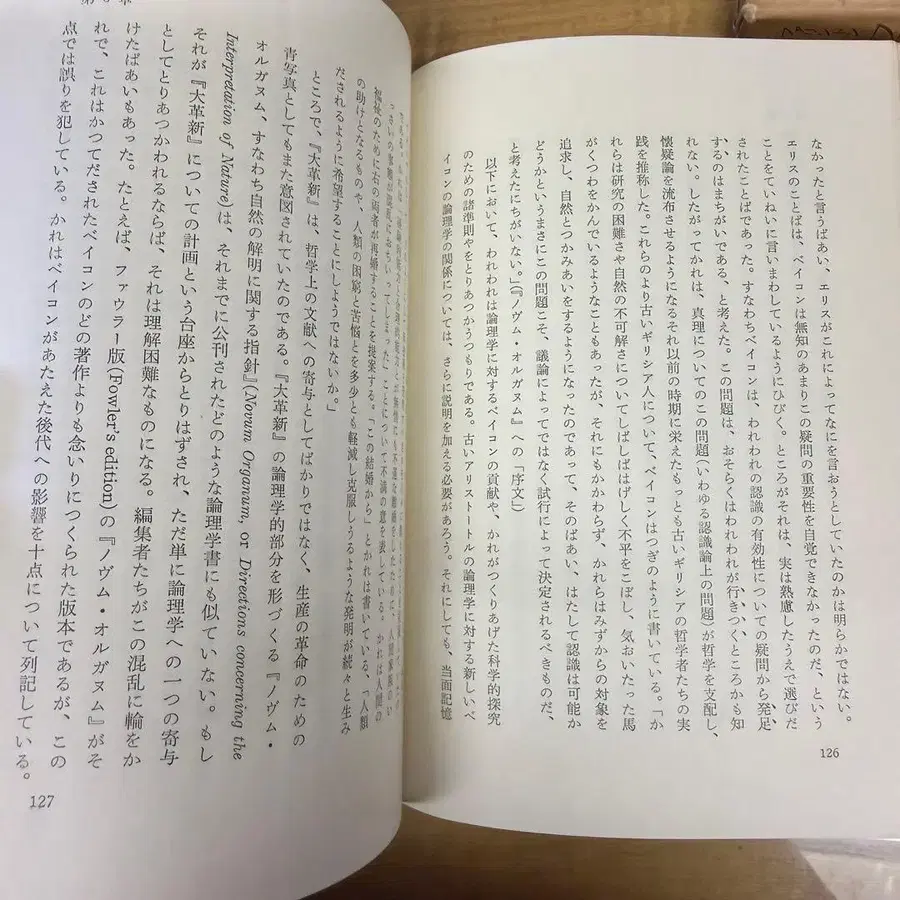 なかったと言うばあい、エリスがこれによってなにを言おうとしていたのかは明らかではない。
エリスのことばは、ベイコンは無知のあまりこの疑問の重要性を自覚できなかったのだ、という
ことをていねいに言いまわしているようにひびく。ところがそれは、実は熟慮したうえで選びだ
されたことばであった。すなわちベイコンは、われわれの認識の有効性についての疑問から発足
するのはまちがいである、と考えた。この問題は、おそらくはわれわれが行きつくところかも知
れない。したがってかれは、真理についてのこの問題(いわゆる認識論上の問題)が哲学を支配し、
懐疑論を流布させるようになるそれ以前の時期に栄えたもっとも古いギリシアの哲学者たちの実
践を推称した。これらのより古いギリシア人について、ベイコンはつぎのように書いている。「か
れらは研究の困難さや自然の不可解さについてしばしばはげしく不平をこぼし、気おいたった馬
がくつわをかんでいるようなこともあったが、それにもかかわらず、かれらはみずからの対象を
追求し、自然とつかみあいをするようになったのであって、そのばあい、はたして認識は可能か
どうかというまさにこの問題こそ、議論によってでなく試行によって決定されるべきものだ、
と考えたにちがいない。」(『ノヴム・オルガヌム』への「序文」)
以下において、われわれは論理学に対するベイコンの貢献や、かれがつくりあげた科学的探究
のための諸準則やをとりあつかうつもりである。古いアリストートルの論理学に対する新しいベ
イコンの論理学の関係については、さらに説明を加える必要があろう。それにしても、当面記憶
126
っさいの事態が混乱におちいってしまった」ことについて不満の意を表している。かれは人間の
福祉のために右の両者が再婚することを提案する。「この結婚から」とかれは書いている、「人類
の助けとなるものや、人類の困窮と苦悩とを多少とも軽減し克服しうるような発明が続々と生み
だされるように希望することにしようではないか。」
ところで、『大革新』は、哲学上の文献への寄与としてばかりではなく、生産の革命のための
青写真としてもまた意図されていたのである。『大革新』の論理学的部分を形づくる『ノヴム・
オルガヌム、すなわち自然の解明に関する指針』(Novum Organum, or Directions concerning the
Interpretation of Nature)は、それまでに公刊されたどのような論理学書にも似ていない。もし
それが『大革新』についての計画という台座からとりはずされ、ただ単に論理学への一つの寄与
としてとりあつかわれるならば、それは理解困難なものになる。編集者たちがこの混乱に輪をか
けたばあいもあった。たとえば、ファウラー版(Fowler's edition)の『ノヴム・オルガヌム』がそ
れで、これはかつてだされたベイコンのどの著作よりも念いりにつくられた版本であるが、この
点では誤りを犯している。かれはベイコンがあたえた後代への影響を十点について列記している。
127